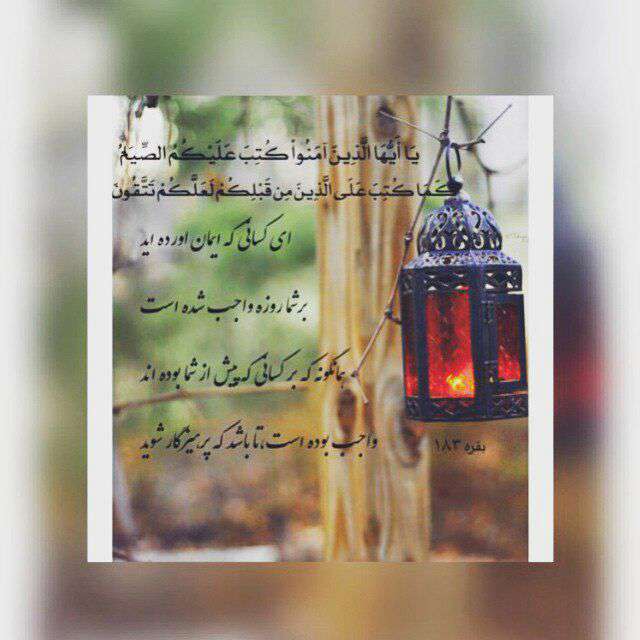 يَا أَيُّهَا الَّذِينَ آمَنُواْ كُتِبَ عَلَيْكُمُ الصِّيَامُ
كَمَا كُتِبَ عَلَى الَّذِينَ مِن قَبْلِكُمْ لَعَلَّكُمْ تَتَّقُونَ
ای کسانی که ایمان آورده اید
بر شما روزه واجب شده است
همانگونه که بر کسانی که پیش از شما بوده اند
واجب بوده است، تا باشد که پرهیزگار شوید
بقره ۱۸۳